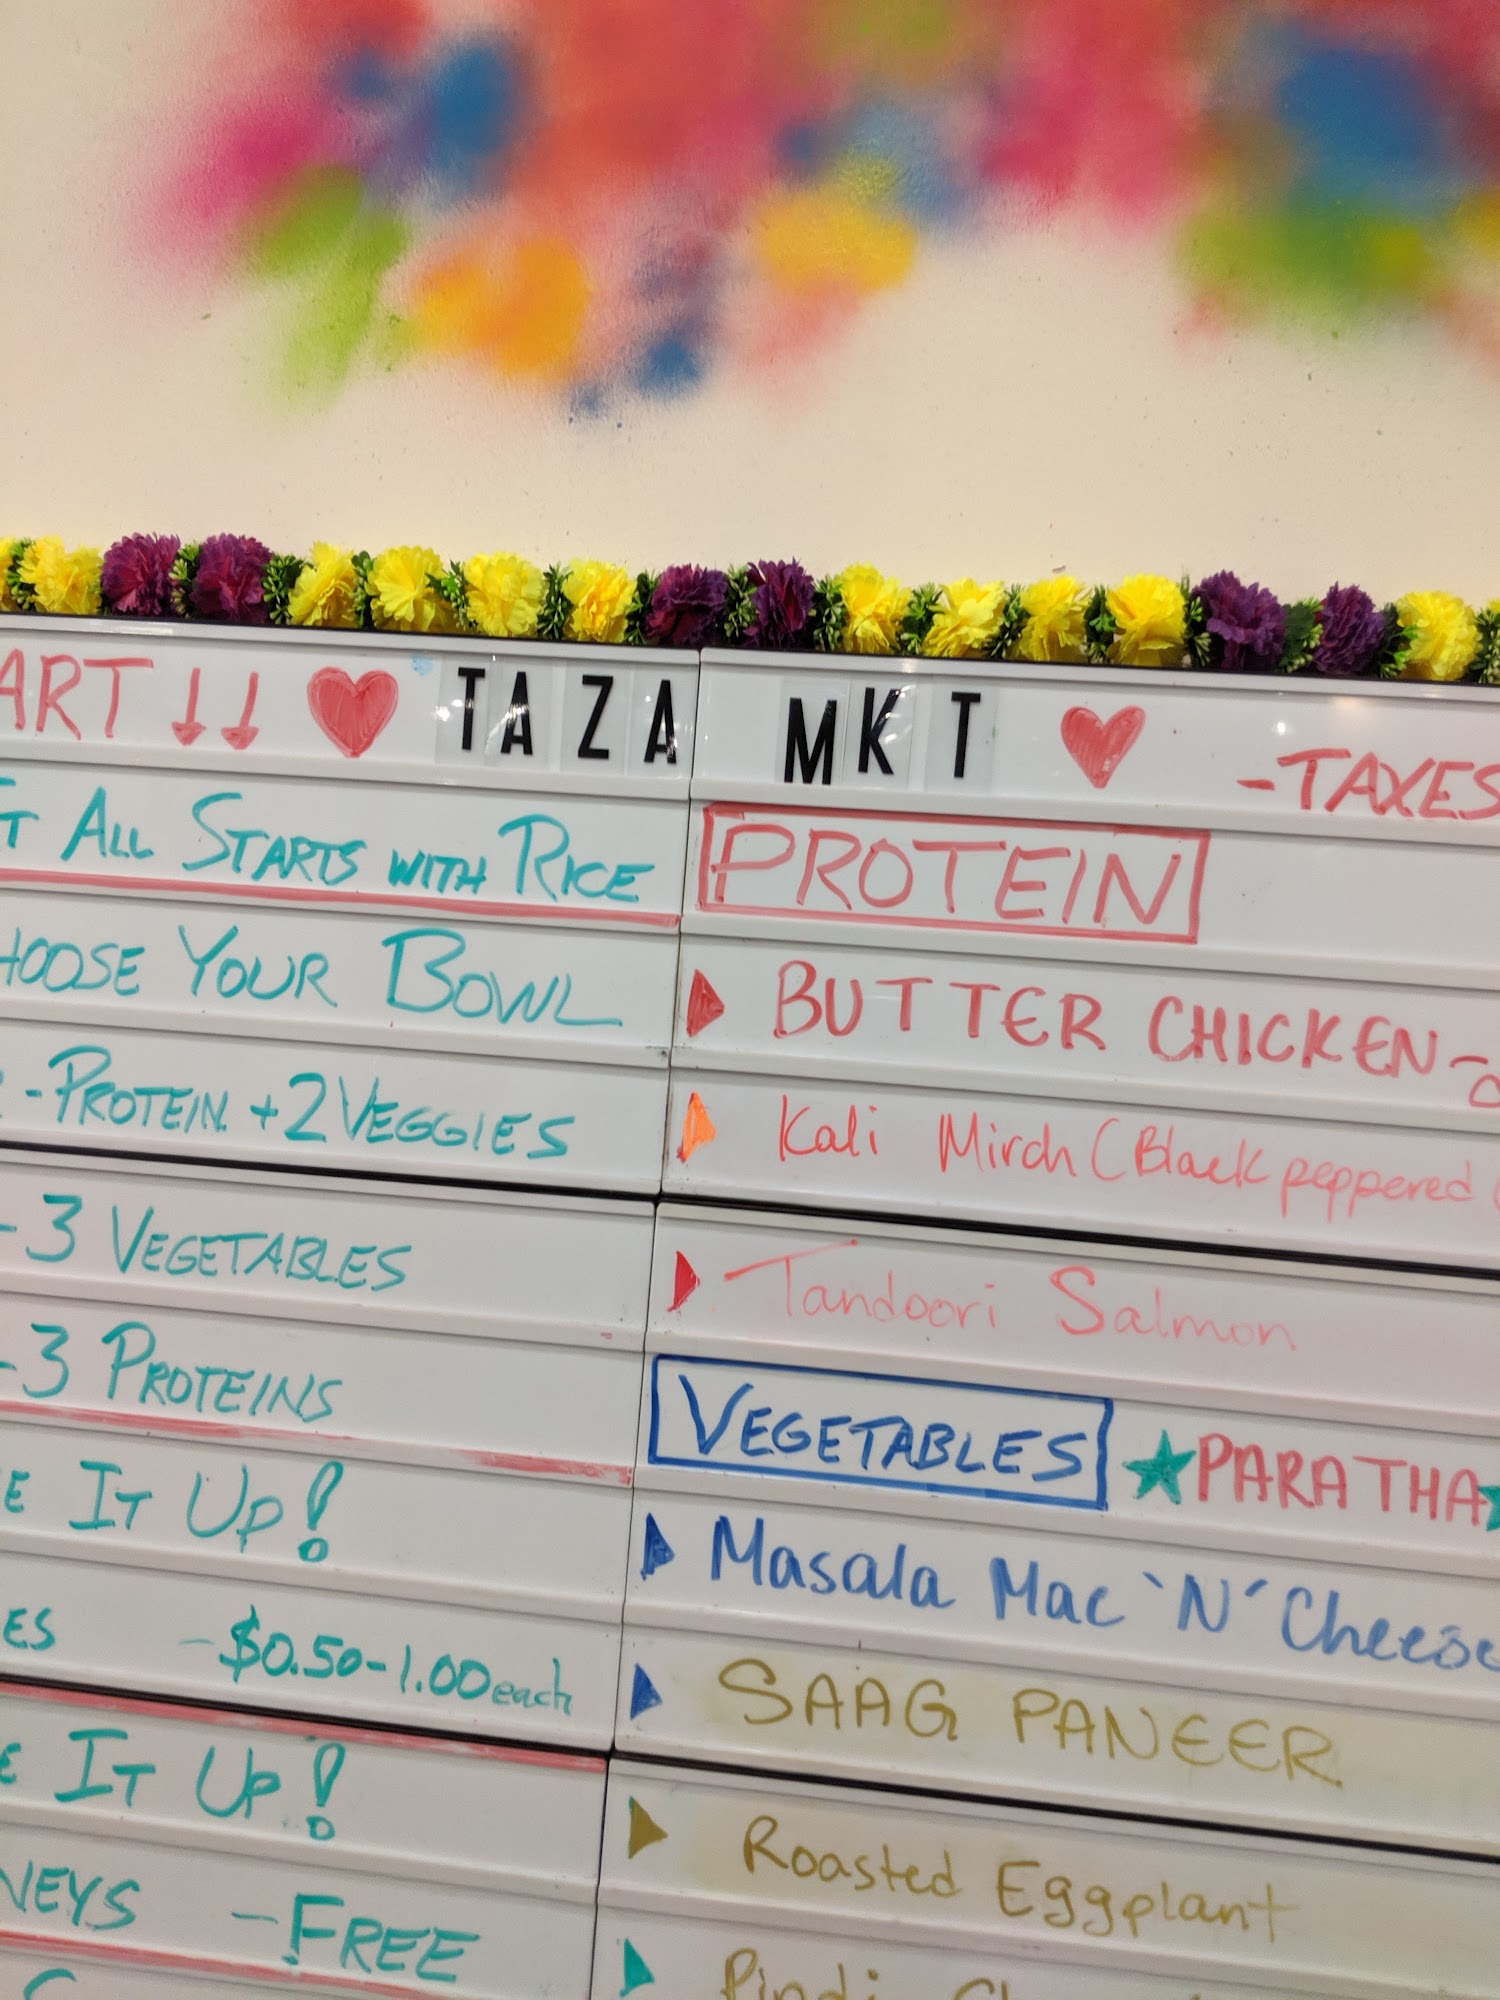 ART ↓↓ ♥ TAZA MKT ♥ -TAXES
All Starts with Rice
Your Bowl
-Protein +2 Veggies
-3 Vegetables
-3 Proteins
It Up!
-$0.50-1.00 each
It Up!
-Free
PROTEIN
BUTTER CHICKEN-
Kali Mirch (Black peppered
Tandoori Salmon
VEGETABLES ★PARATHA★
Masala Mac 'N' Cheese
SAAG PANEER
Roasted Eggplant
Pindi